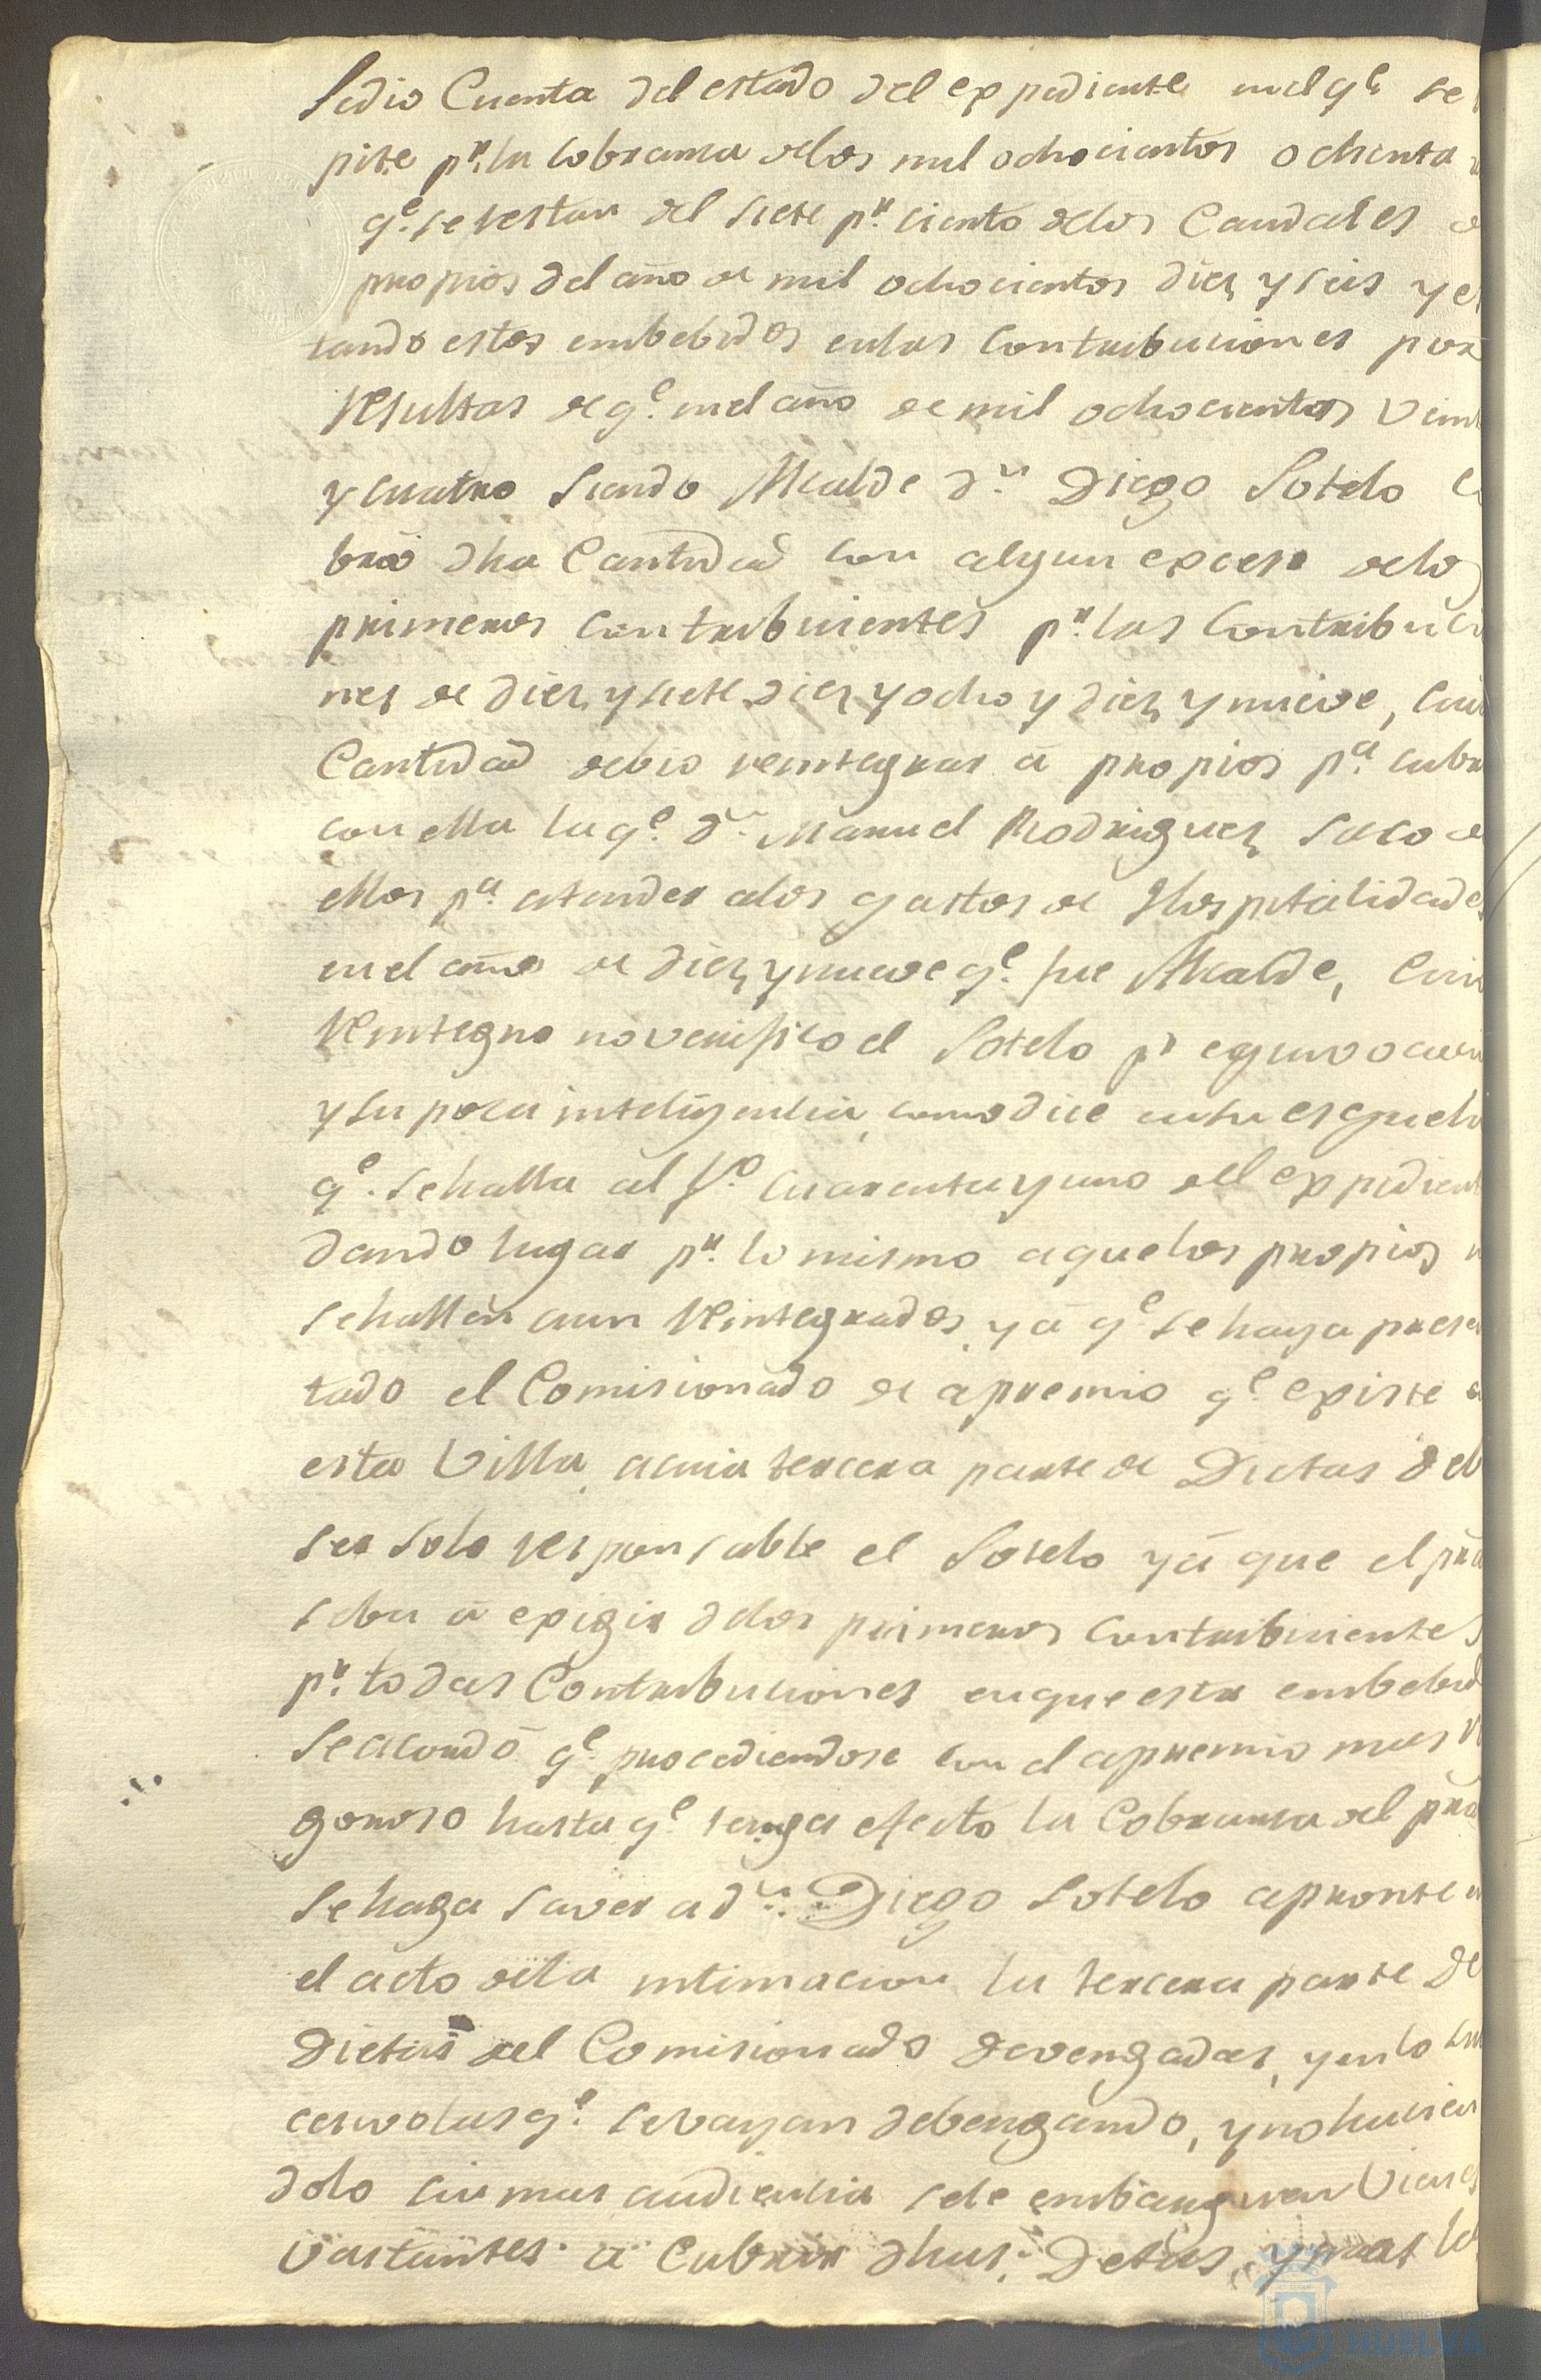 Sedio Cuenta del estado del expediente enel qe. se
pite pr. la cobranza delos mil ochocientos ochenta
qe. se restan del siete pr. ciento delos Caudales
propios del año de mil ochocientos diez y seis y es
tando estos embebidos enlas Contribuciones por
resultas de qe. enel año de mil ochocientos vein
y cuatro siendo Alcalde dn. Diego Sotelo co
bró dha Cantidad con algun exceso delos
primeros contribuientes pr. las contribucio
nes de diez y siete diez y ocho y diez y nueve, cuia
Cantidad debio reintegrar á propios pa. cubrir
con ella la qe. dn. Manuel Rodriguez saco de
ellos pa. atender alos gastos de Hospitalidades
enel año de diez y nueve qe. fue Alcalde, cuio
reintegro no verifico el Sotelo pr equivocacion
y su poca inteligencia, como dice ensu esquela
qe. sehalla al fo. cuarenta y uno del expedient
dando lugar pr. lo mismo aque los propios
sehallen aun reintegrados, y á qe. se haya presen
tado el Comisionado de apremio qe. existe
esta Villa, a cuia tercera parte de Dietas deb
ser solo responsable el Sotelo yá que el pral
seba á exigir delos primeros contribuientes
pr. todas Contribuciones enque esta embebid
Se acordó qe. procediendose con el apremio mas ri
goroso hasta qe. tenga efecto la Cobranza del pral
se haga saver a dn. Diego Sotelo apronte en
el acto dela intimacion la tercera parte de
Dietas del Comisionado devengadas, y en lo su
cesivo las qe. se vayan debengando, y no hacien
dolo sin mas audiencia sele embarguen Vienes
vastantes á Cubrir dhas. Dietas, y mas
HUELVA